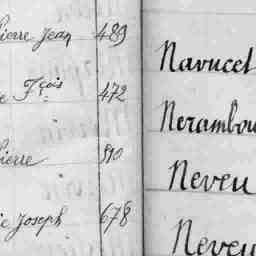 Pierre Jean 489
e Fçois 472
Pierre 510
ie Joseph 678
Navucet
Nerambou
Neveu
Neveu